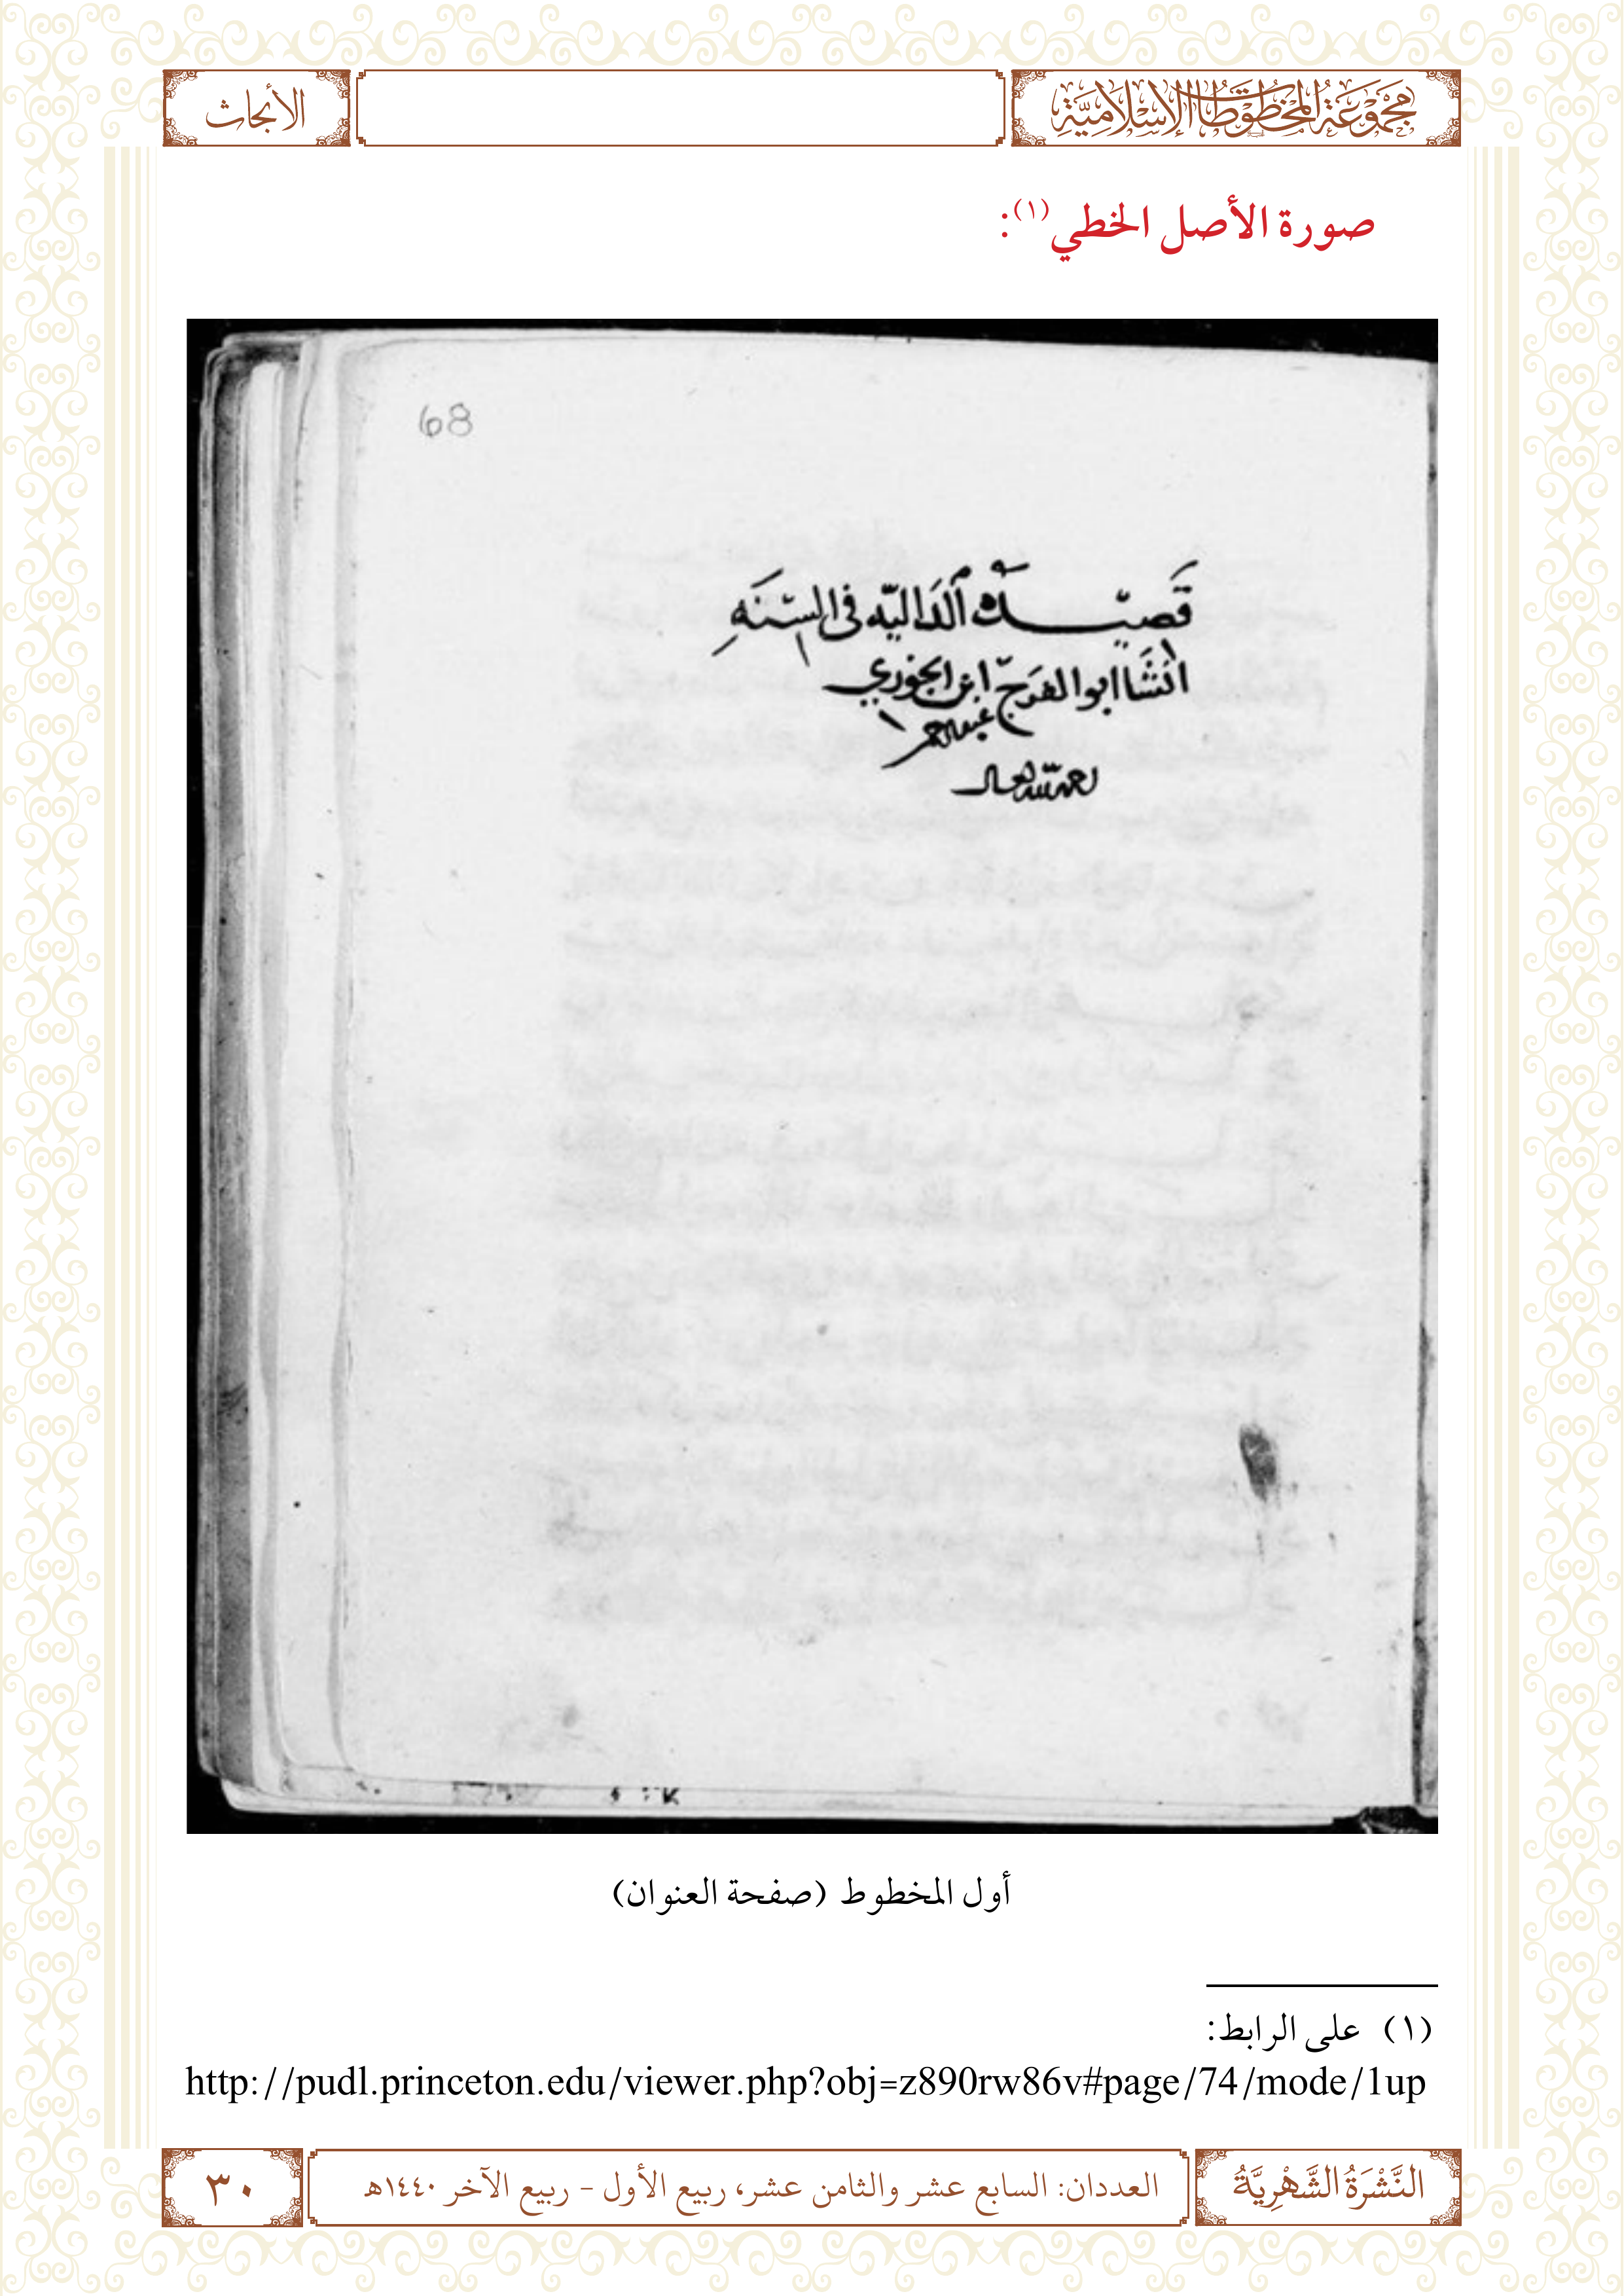 مَجْمُوعَةُ المَخْطُوطَاتِ الإِسْلَامِيَّةِ
الأبحاث
صورة الأصل الخطي(١):
68
قصيده الداليه فى السنه
انشا ابو الفرج ابن الجوزي
عبد الرحمن
رحمه الله تعالى
أول المخطوط (صفحة العنوان)
(١) على الرابط:
http://pudl.princeton.edu/viewer.php?obj=z890rw86v#page/74/mode/1up
النَّشْرَةُ الشَّهْرِيَّةُ
العددان: السابع عشر والثامن عشر، ربيع الأول - ربيع الآخر ١٤٤٠هـ
٣٠